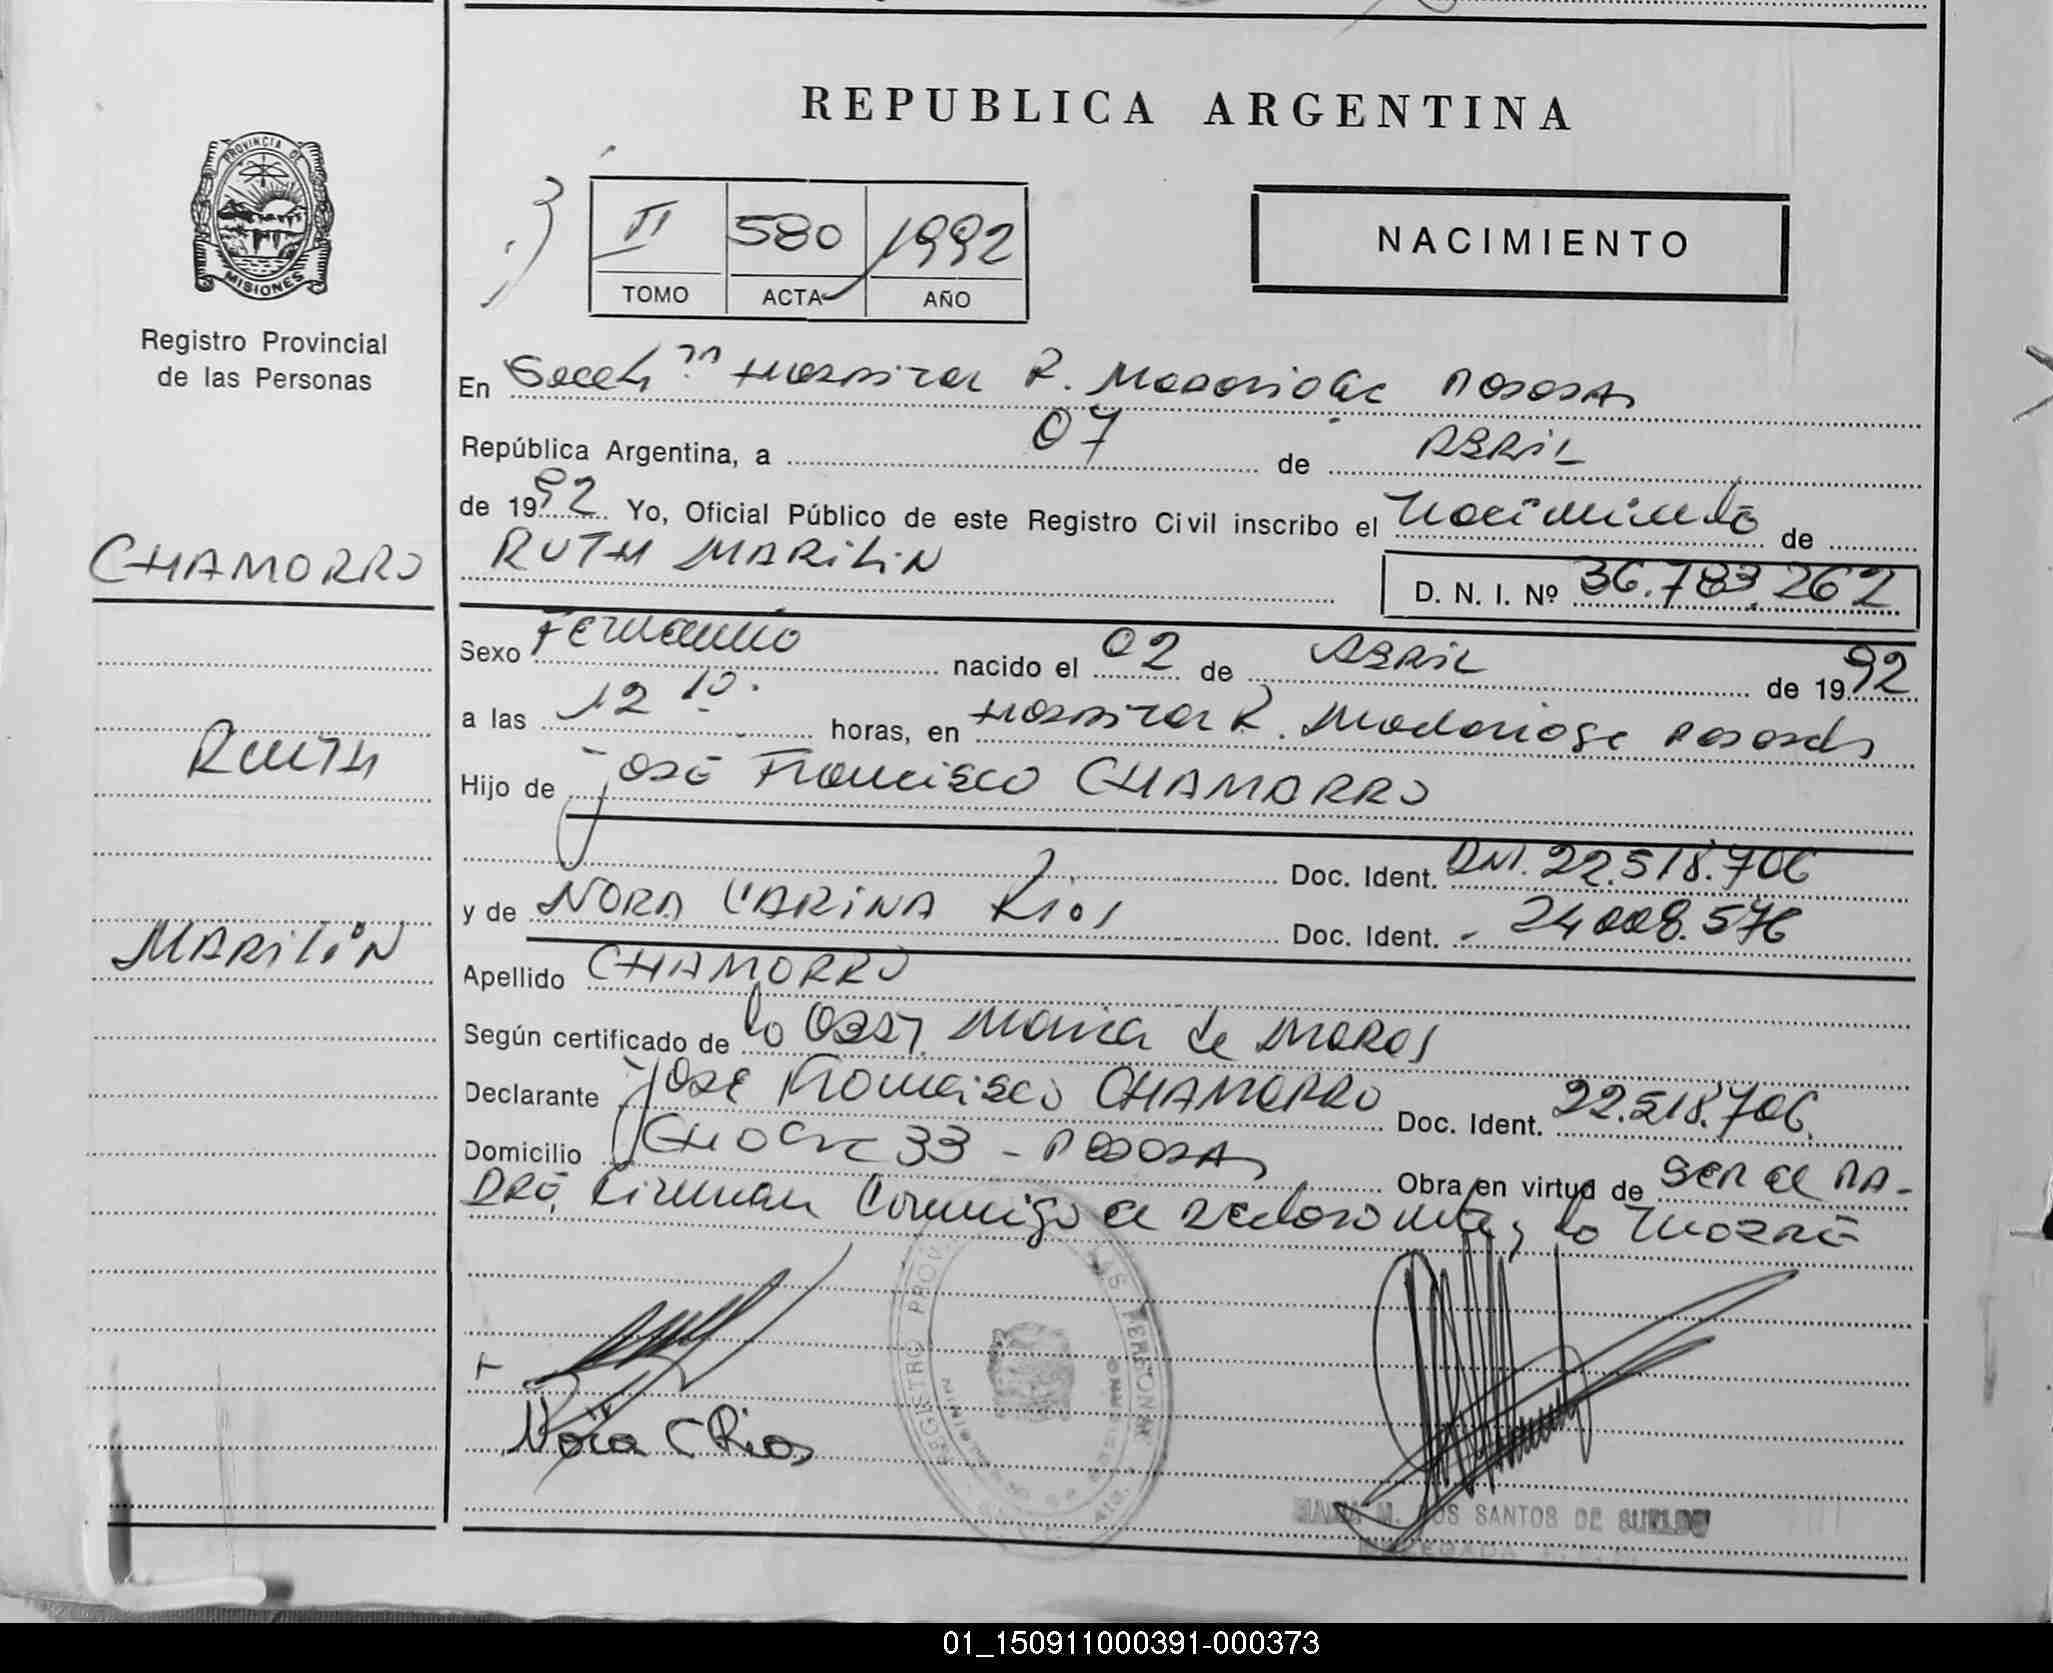 REPUBLICA ARGENTINA
PROVINCIA DE
MISIONES
Registro Provincial
de las Personas
II 580 1992
TOMO ACTA AÑO
NACIMIENTO
En Hospital R. Madariaga Posadas
República Argentina, a 07 de ABRIL
de 1992 Yo, Oficial Público de este Registro Civil inscribo el Nacimiento de
CHAMORRO
RUTH MARILIN D. N. I. Nº 36.783.262
Sexo Femenino nacido el 02 de ABRIL de 1992
a las 12 10 horas, en Hospital R. Madariaga Posadas
RUTH
Hijo de José Francisco CHAMORRO
Doc. Ident. DNI. 22.518.706
y de NORA CARINA Rios Doc. Ident. 24.008.576
MARILIN
Apellido CHAMORRO
Según certificado de la Obst. Maria de
Declarante José Francisco CHAMORRO Doc. Ident. 22.518.706.
Domicilio 33 - POSADAS Obra en virtud de SER el PA-
DRE, Firman Conmigo el declarante y la MADRE
Nora C Rios
REGISTRO PROV. LAS PERSONAS
M. DOS SANTOS DE
01_150911000391-000373